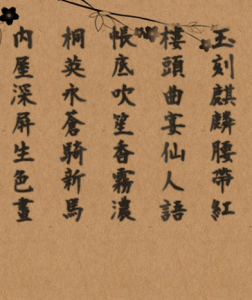 玉刻麒麟腰帶紅
樓頭曲宴仙人語
帳底吹笙香霧濃
桐英永蒼騎新馬
内屋深屏生色畫